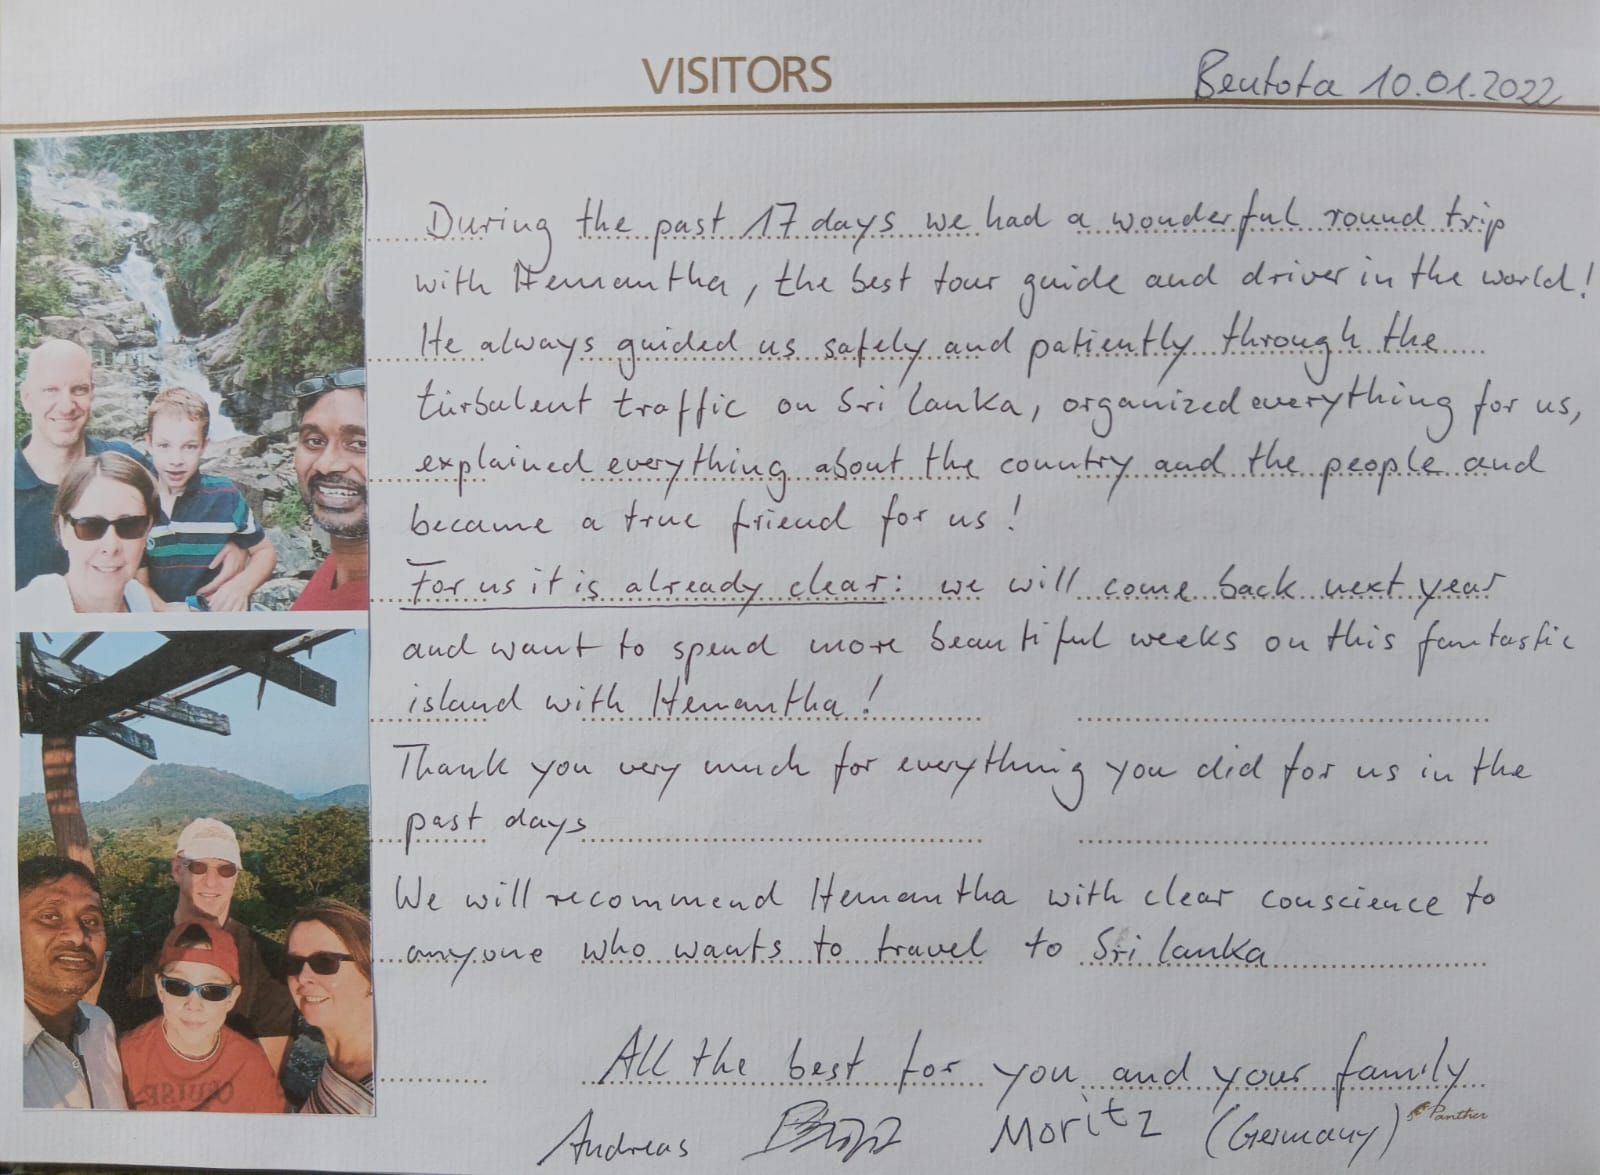 VISITORS
Bentota 10.01.2022
During the past 17 days we had a wonderful round trip
with Hemantha, the best tour guide and driver in the world!
He always guided us safely and patiently through the
turbulent traffic on Sri Lanka, organized everything for us,
explained everything about the country and the people and
became a true friend for us!
For us it is already clear: we will come back next year
and want to spend more beautiful weeks on this fantastic
island with Hemantha!
Thank you very much for everything you did for us in the
past days
We will recommend Hemantha with clear conscience to
anyone who wants to travel to Sri Lanka
All the best for you and your family
Panther
Andreas Moritz (Germany)